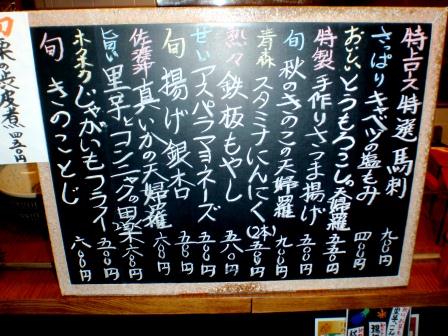 特上ロース特選 馬刺 九〇〇円
さっぱり キャベツの塩もみ 四〇〇円
おいしい とうもろこしの天婦羅 五五〇円
特製 手作りさつま揚げ 五〇〇円
旬 秋のきのこの天婦羅 九〇〇円
青森 スタミナにんにく(2本) 五〇〇円
熱々 鉄板もやし 五八〇円
ぜいたく アスパラマヨネーズ 五〇〇円
旬 揚げ銀杏 五〇〇円
佐渡 真いかの天婦羅 六〇〇円
旨い 里芋とコンニャクの田楽 六〇〇円
ホクホク じゃがいもフライ 五〇〇円
旬 きのことじ 六〇〇円
栗の渋皮煮 四五〇円